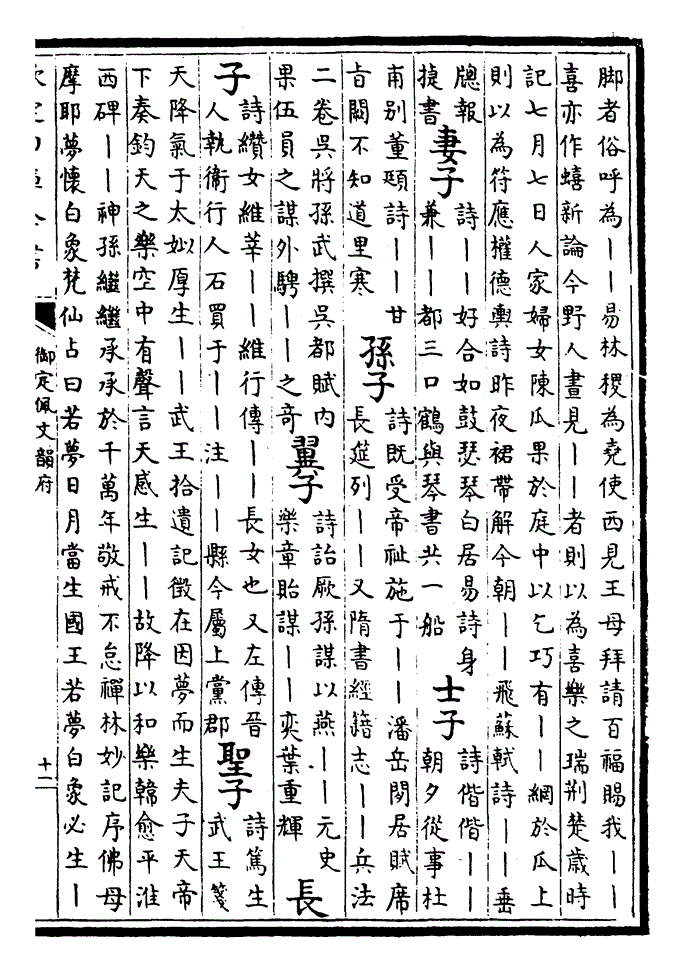 脚者俗呼為丨丨易林稷為堯使西見王母拜請百福賜我丨丨
喜亦作蟢新論今野人晝見丨丨者則以為喜樂之瑞荆楚歲時
記七月七日人家婦女陳瓜果於庭中以乞巧有丨丨網於瓜上
則以為符應權德輿詩昨夜裙帶解今朝丨丨飛蘇軾詩丨丨垂
牕報
捷書
妻子
詩丨丨好合如鼓瑟琴白居易詩身
兼丨丨都三口鶴與琴書共一船
士子
詩偕偕丨丨
朝夕從事杜
甫别董頲詩丨丨甘
旨闕不知道里寒
孫子
詩既受帝祉施于丨丨潘岳閑居賦席
長筵列丨丨又隋書經籍志丨丨兵法
二卷吳將孫武撰吳都賦内
果伍員之謀外騁丨丨之奇
翼子
詩詒厥孫謀以燕丨丨元史
樂章貽謀丨丨奕葉重輝
長
子
詩纘女維莘丨丨維行傳丨丨長女也又左傳晉
人執衛行人石買于丨丨注丨丨縣今屬上黨郡
聖子
詩篤生
武王箋
天降氣于太姒厚生丨丨武王拾遺記徵在因夢而生夫子天帝
下奏鈞天之樂空中有聲言天感生丨丨故降以和樂韓愈平淮
西碑丨丨神孫繼繼承承於千萬年敬戒不怠禪林妙記序佛母
摩耶夢懷白象梵仙占曰若夢日月當生國王若夢白象必生丨
御定佩文韻府
十一